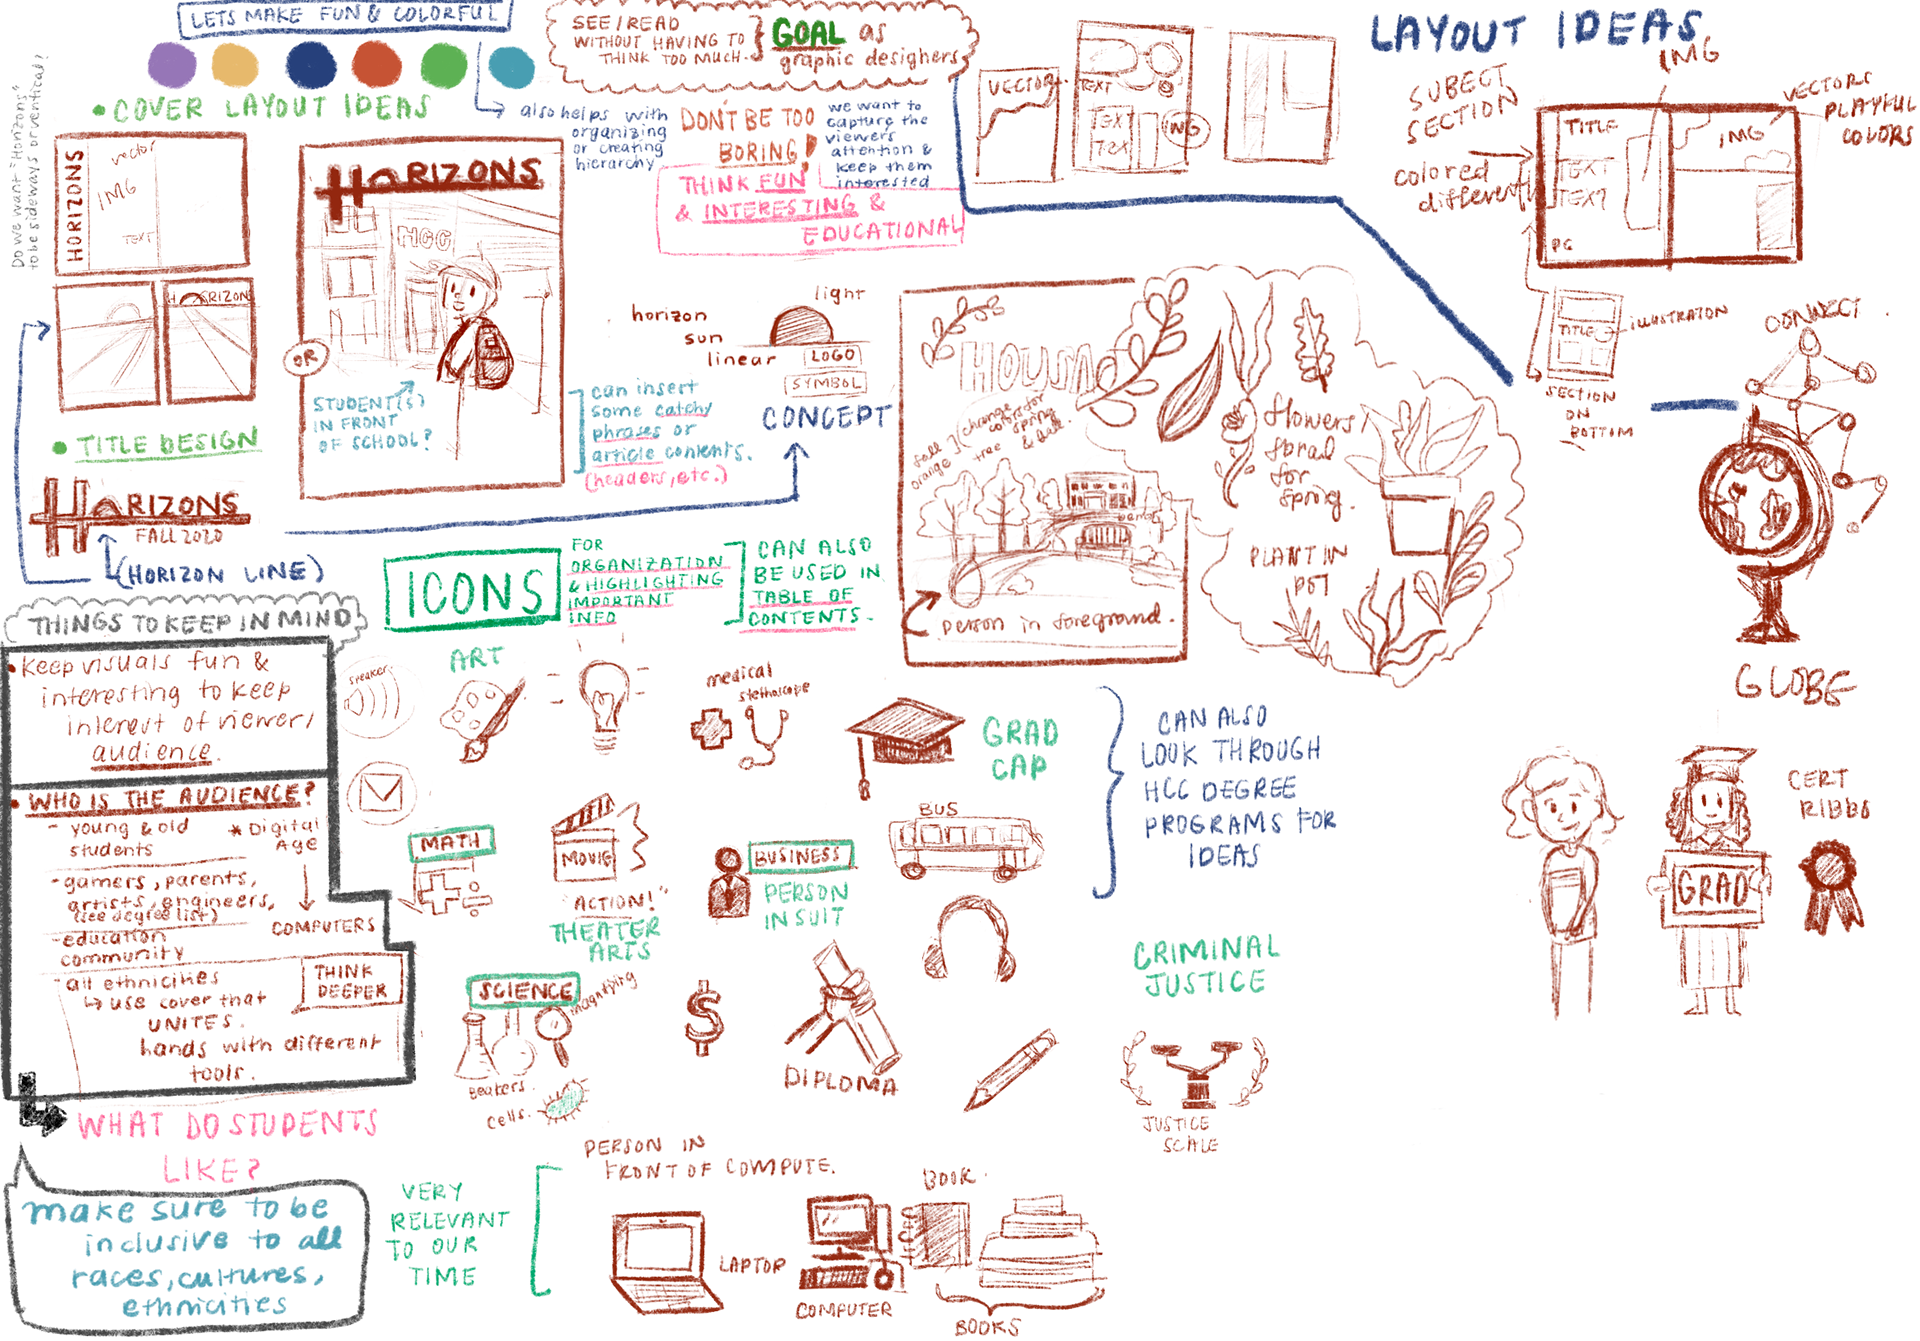 LETS MAKE FUN & COLORFUL
SEE/READ
WITHOUT HAVING TO
THINK TOO MUCH.
GOAL as
graphic designers
LAYOUT IDEAS
Do we want "Horizons"
to be sideways or vertical?
• COVER LAYOUT IDEAS
also helps with
organizing
or creating
hierarchy
DON'T BE TOO
BORING
we want to
capture the
viewers
attention &
keep them
interested
THINK FUN
& INTERESTING &
EDUCATIONAL
HORIZONS
vector
IMG
TEXT
HORIZONS
HCC
OR
STUDENT(S)
IN FRONT
OF SCHOOL?
can insert
some catchy
phrases or
article contents.
(headers, etc.)
HORIZON
light
horizon
sun
linear
LOGO
SYMBOL
CONCEPT
VECTOR
TEXT
TEXT
TEX
IMG
SUBECT
SECTION
colored
differently
IMG
VECTORS
PLAYFUL
COLORS
TITLE
TEXT
TEXT
PG
IMG
TITLE
ILLUSTRATON
SECTION
ON
BOTTOM
CONNECT
GLOBE
• TITLE DESIGN
HORIZONS
FALL 2020
(HORIZON LINE)
fall
orange
tree
change
color for
spring
& fall.
person in foreground.
flowers/
floral
for
spring.
PLANT IN
POT
ICONS
FOR
ORGANIZATION
& HIGHLIGHTING
IMPORTANT
INFO
CAN ALSO
BE USED IN
TABLE OF
CONTENTS.
THINGS TO KEEP IN MIND
• Keep visuals fun &
interesting to keep
interest of viewer/
audience.
• WHO IS THE AUDIENCE?
- young & old
students
* Digital
Age
- gamers, parents,
artists, engineers,
(see degree list)
COMPUTERS
- education
community
- all ethnicities
↳ use cover that
UNITES.
hands with different
tools.
THINK
DEEPER
WHAT DO STUDENTS
LIKE?
make sure to be
inclusive to all
races, cultures,
ethnicities
speaker
ART
medical
stethoscope
GRAD
CAP
CAN ALSO
LOOK THROUGH
HCC DEGREE
PROGRAMS FOR
IDEAS
MATH
MOVIE
"ACTION!"
THEATER
ARTS
BUSINESS
PERSON
IN SUIT
BUS
SCIENCE
magnifying
Beakers.
cells.
$
DIPLOMA
CRIMINAL
JUSTICE
JUSTICE
SCALE
GRAD
CERT
RIBBO
VERY
RELEVANT
TO OUR
TIME
PERSON IN
FRONT OF COMPUTE.
LAPTOP
COMPUTER
BOOK.
BOOKS